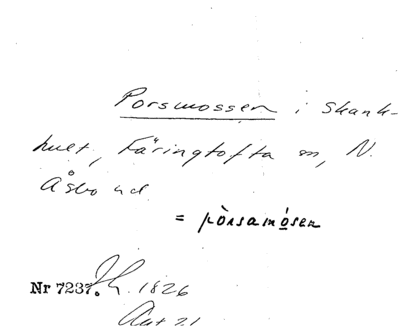 Porsmossen i Skank-
hult, Färingtofta sn, N.
Åsbo hd.
= pòrsamósen
Nr 7237. 1826